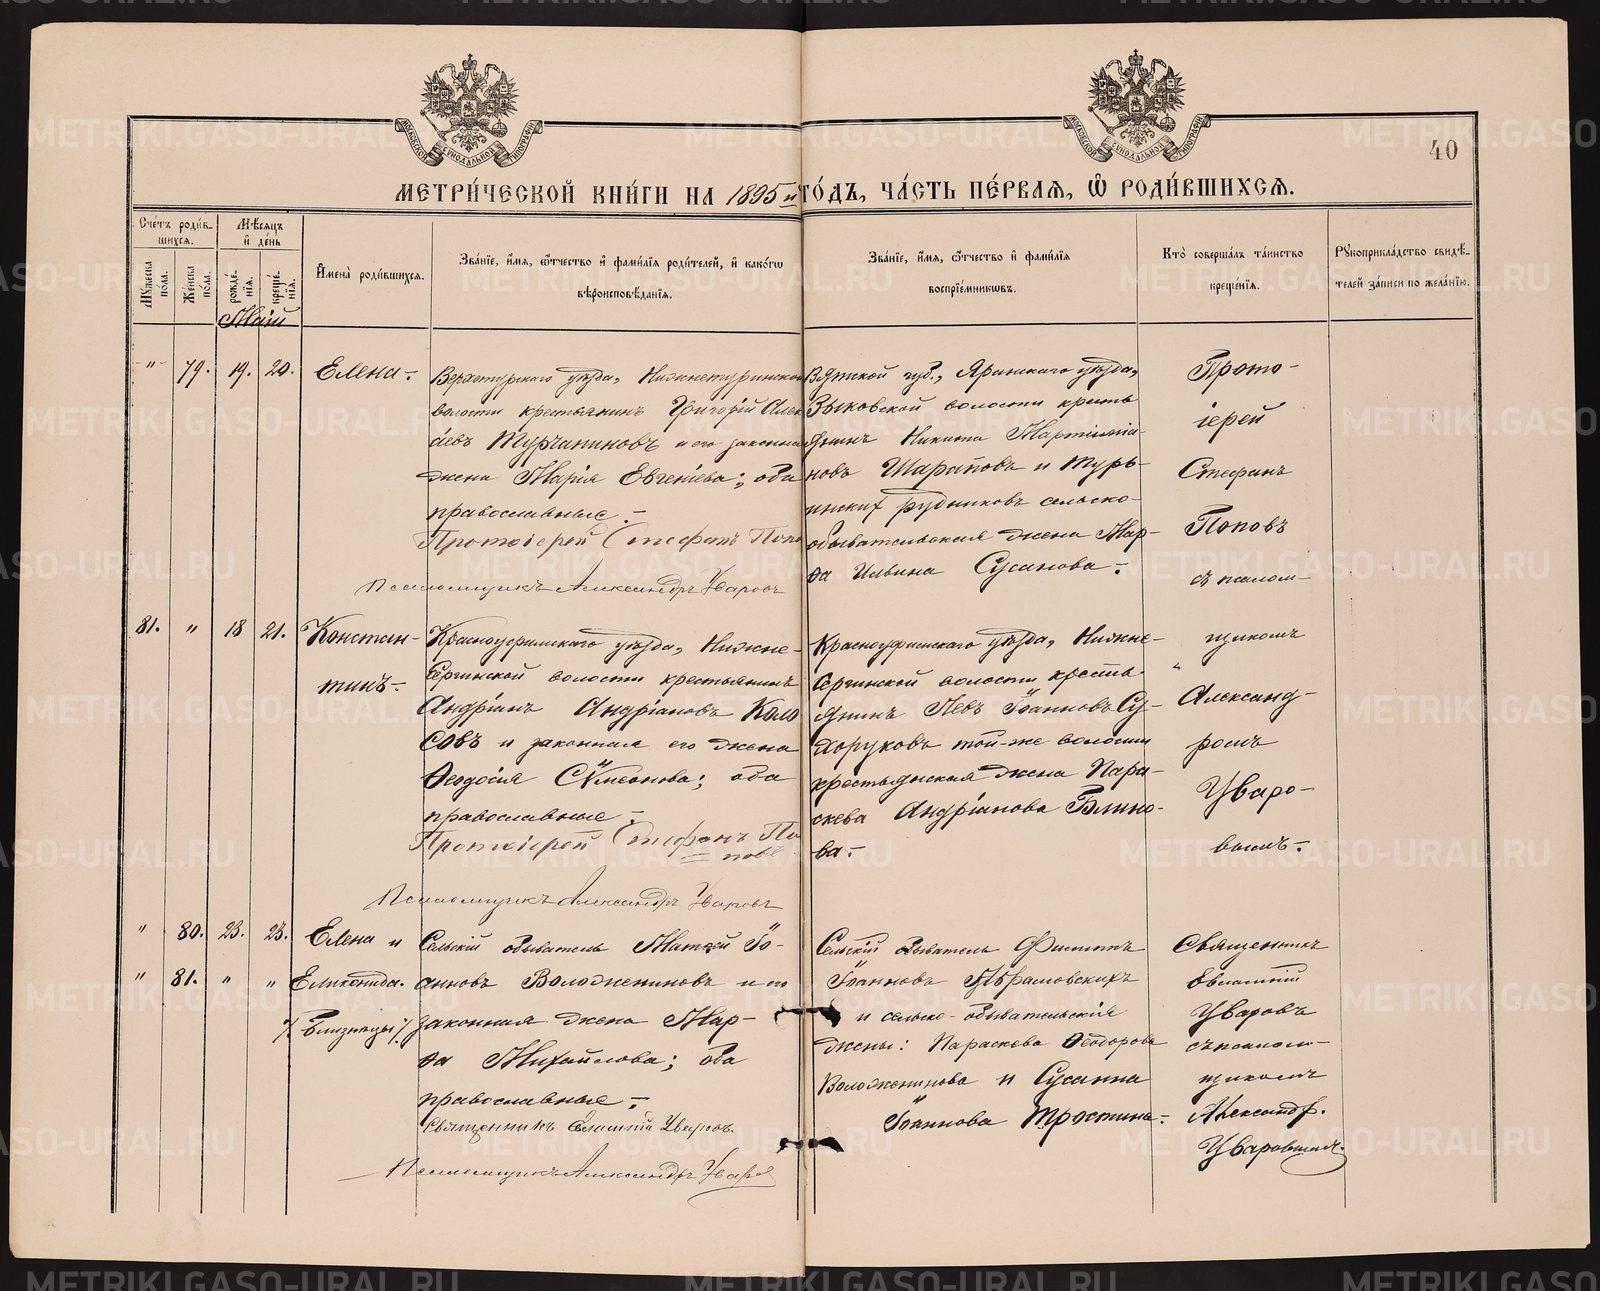 МЕТРИ́ЧЕСКОЙ КНИ́ГИ НА 1895й ГО́ДЪ, ЧА́СТЬ ПЕ́РВАЯ, Ѽ РОДИ́ВШИХСЯ.
40
Сче́тъ роди́в-
шихся.
Мѣ́сяцъ
и де́нь
Мꙋ́жеска
по́ла.
Же́нска
по́ла.
рожде́-
нїя.
креще́-
нїя.
И́мена̀ роди́вшихся.
Зва́нїе, и́мя, ѻ҆́тчество и фами́лїя роди́телей, и како́гѡ
вѣроисповѣ́данїя.
Зва́нїе, и́мя, ѻ҆́тчество и фами́лїя
воспрїе́мникѡвъ.
Кто̀ соверша́лъ та́инство
креще́нїя.
Рꙋкоприкла́дство свидѣ́-
телей за́писи по жела́нїю.
Маій
" 79. 19. 20. Елена.-
Верхотурскаго уѣзда, Нижнетуринской
волости крестьянинъ Григорій Алек
сіевъ Турчаниновъ и его законная
жена Марія Евгеніева; оба
православные.-
Протоіерей Стефанъ Попо
Псаломщикъ Александръ Уваровъ
Вятской губ., Яранскаго уѣзда,
Зыковской волости кресть
янинъ Никита Мартиміа-
новъ Шараповъ и Турь-
инских рудниковъ сельско-
обывательская жена Мар-
ѳа Ильина Сусанова.-
Прото-
іерей
Стефанъ
Поповъ
съ псалом-
щикомъ
Александ-
ромъ
Уваро-
вымъ.-
81. " 18 21. Констан-
тинъ.-
Красноуфимскаго уѣзда, Нижне-
Сергинской волости крестьянинъ
Андріанъ Андріановъ Коло
совъ и законная его жена
Ѳеодосія Сѵмеонова; оба
православные.-
Протоіерей Стефанъ По
повъ
Псаломщикъ Александръ Уваровъ
Красноуфимскаго уѣзда, Нижне-
Сергинской волости кресть
янинъ Левъ Іоанновъ Су-
хоруковъ той-же волости
крестьянская жена Пара-
скева Андріанова Блино-
ва.-
" 80. 23. 23. Елена и
" 81. " " Еликонида.
/: Близнецы :/
Сельскій обыватель Матѳей Іо-
анновъ Воложениновъ и его
законная жена Мар-
ѳа Михайлова; оба
православные.-
Священникъ Евлампій Уваровъ.
Псаломщикъ Александръ Уваров
Сельскій обыватель Филиппъ
Іоанновъ Абрамовскихъ
и сельско-обывательскія
жены: Параскева Ѳеодорова
Воложенинова и Сусанна
Іоаннова Тростина.-
Священникъ
Евлампій
Уваровъ
съ псалом-
щикомъ
Александр.
Уваровымъ.